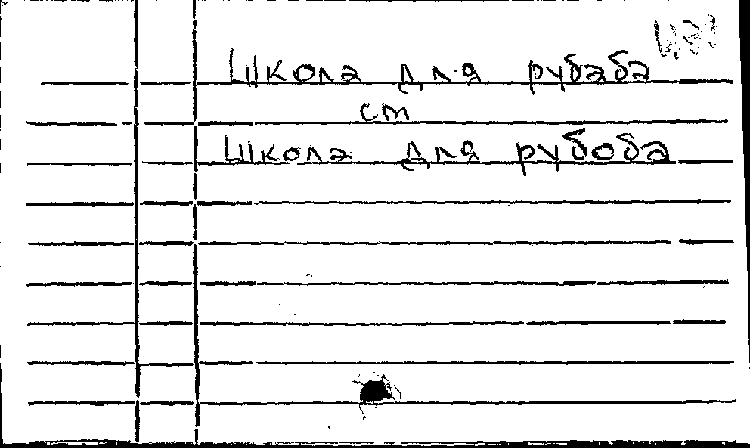 Школа для рубаба
см
Школа для рубоба